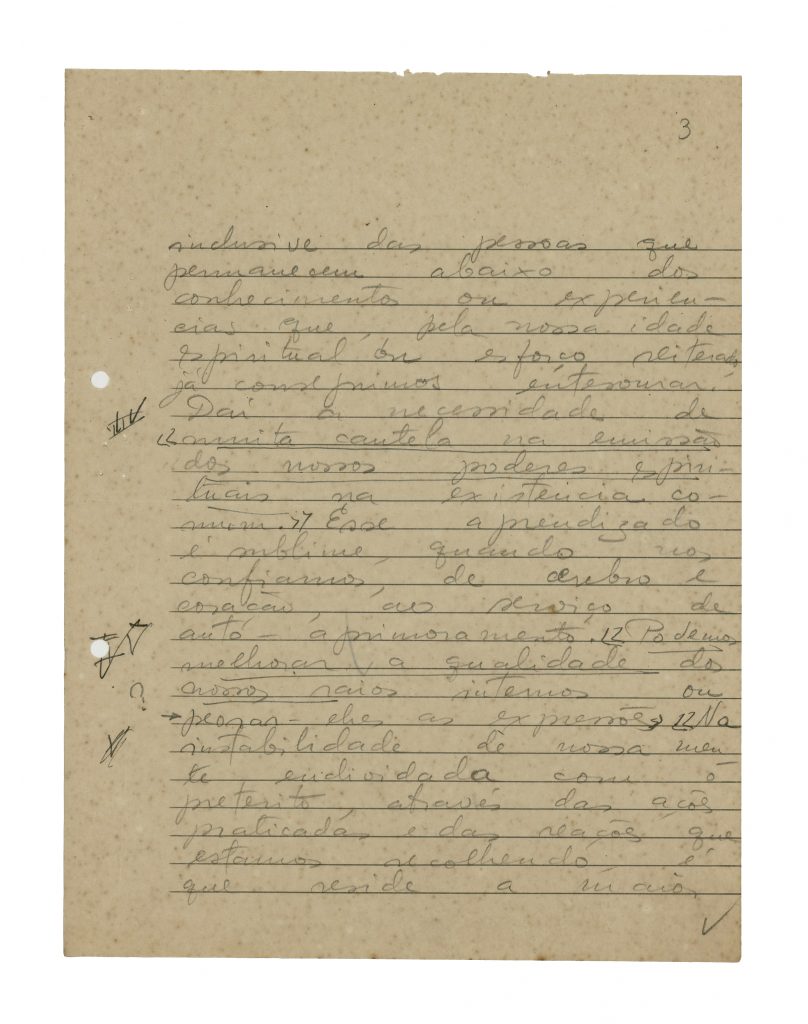 3
inclusive das pessoas que
permanecem abaixo dos
conhecimentos ou experien-
cias que, pela nossa idade
espiritual ou esforço reiterado
já conseguimos entesourar.
Daí a necessidade de
muita cautela na emissão
dos nossos poderes espiri-
tuais na existencia co-
mum. Esse aprendizado
é sublime, quando nos
confiamos, de cerebro e
coração, ao serviço de
auto-aprimoramento. 12 Podemos
melhorar a qualidade dos
? nossos raios internos ou
→ peorar-lhes as expressões 12 Na
instabilidade de nossa men
te, endividada com o
preterito, através das ações
praticadas e das reações que
estamos recolhendo é
que reside a maior